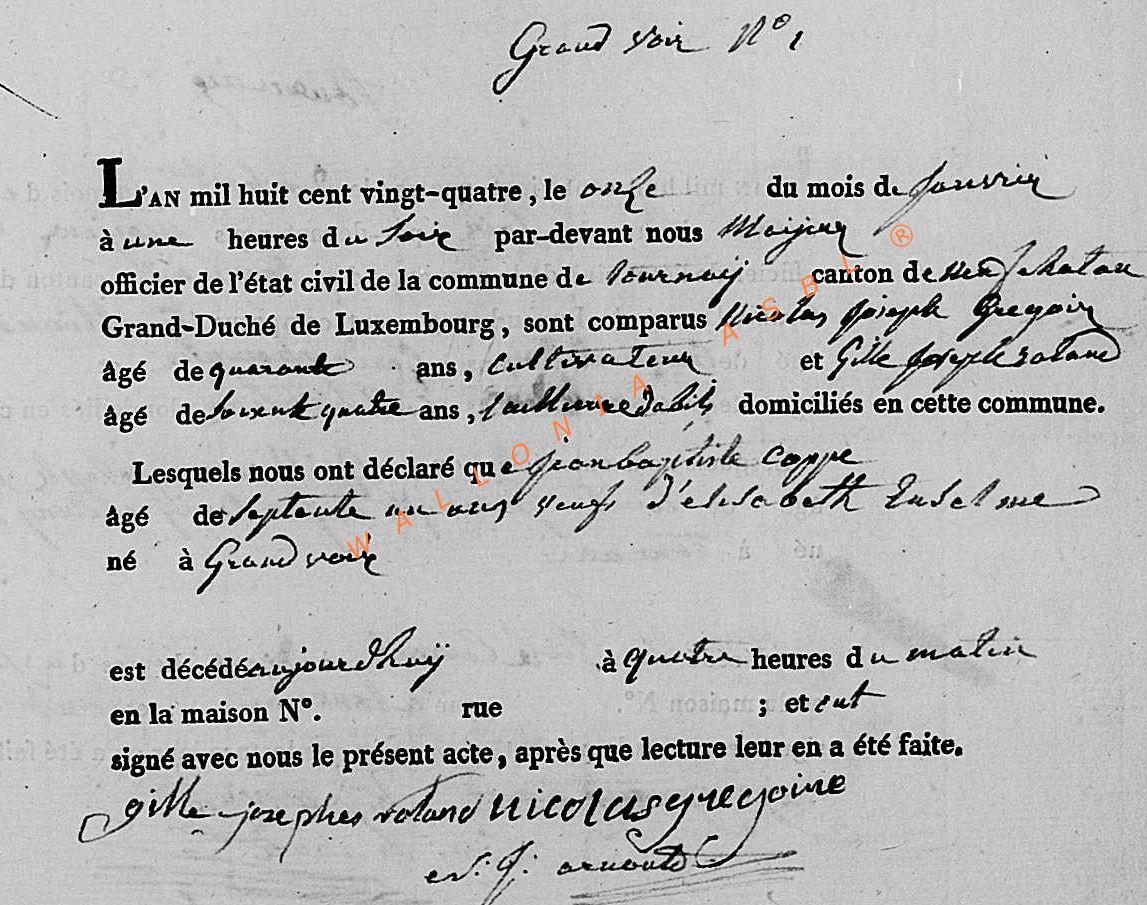 Grand voir N° 1
L'AN mil huit cent vingt-quatre, le onze du mois de janvier
à une heures du Soir par-devant nous
officier de l'état civil de la commune de tournaÿ canton de neufchateau
Grand-Duché de Luxembourg, sont comparus Nicolas joseph Gregoir
âgé de quarante ans, Cultivateur et Gille joseph roland
âgé de soixente quatre ans, tailleure d'abits domiciliés en cette commune.
Lesquels nous ont déclaré que jean baptiste coppe
âgé de septente un ans veuf d'elisabeth Enselme
né à Grand voir
est décédé aujourd'huÿ à quatre heures du matin
en la maison N°. rue ; et ont
signé avec nous le présent acte, après que lecture leur en a été faite.
gille josephes roland nicolas gregoire
arnould
WALLONIA ASBL ®